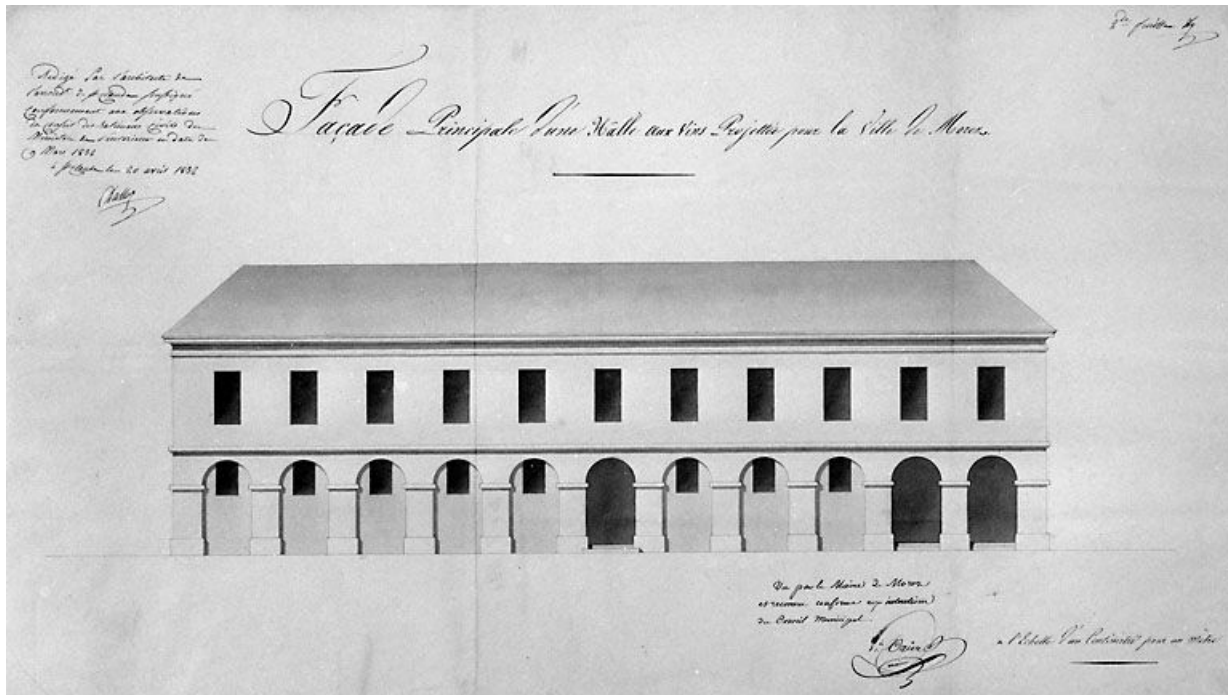 Rédigé par l'architecte de
conformément aux observations
du conseil des bâtimens civils du
Ministre de l'intérieur en date du
9 Mars 1832
St Claude le 20 avril 1832
Façade Principale d'une Halle aux Vins Projettée pour la Ville de Morez
Vu par le Maire de Morez
et reconnu conforme aux intentions
du Conseil Municipal.
à l'Echelle d'un Centimètre pour un mètre